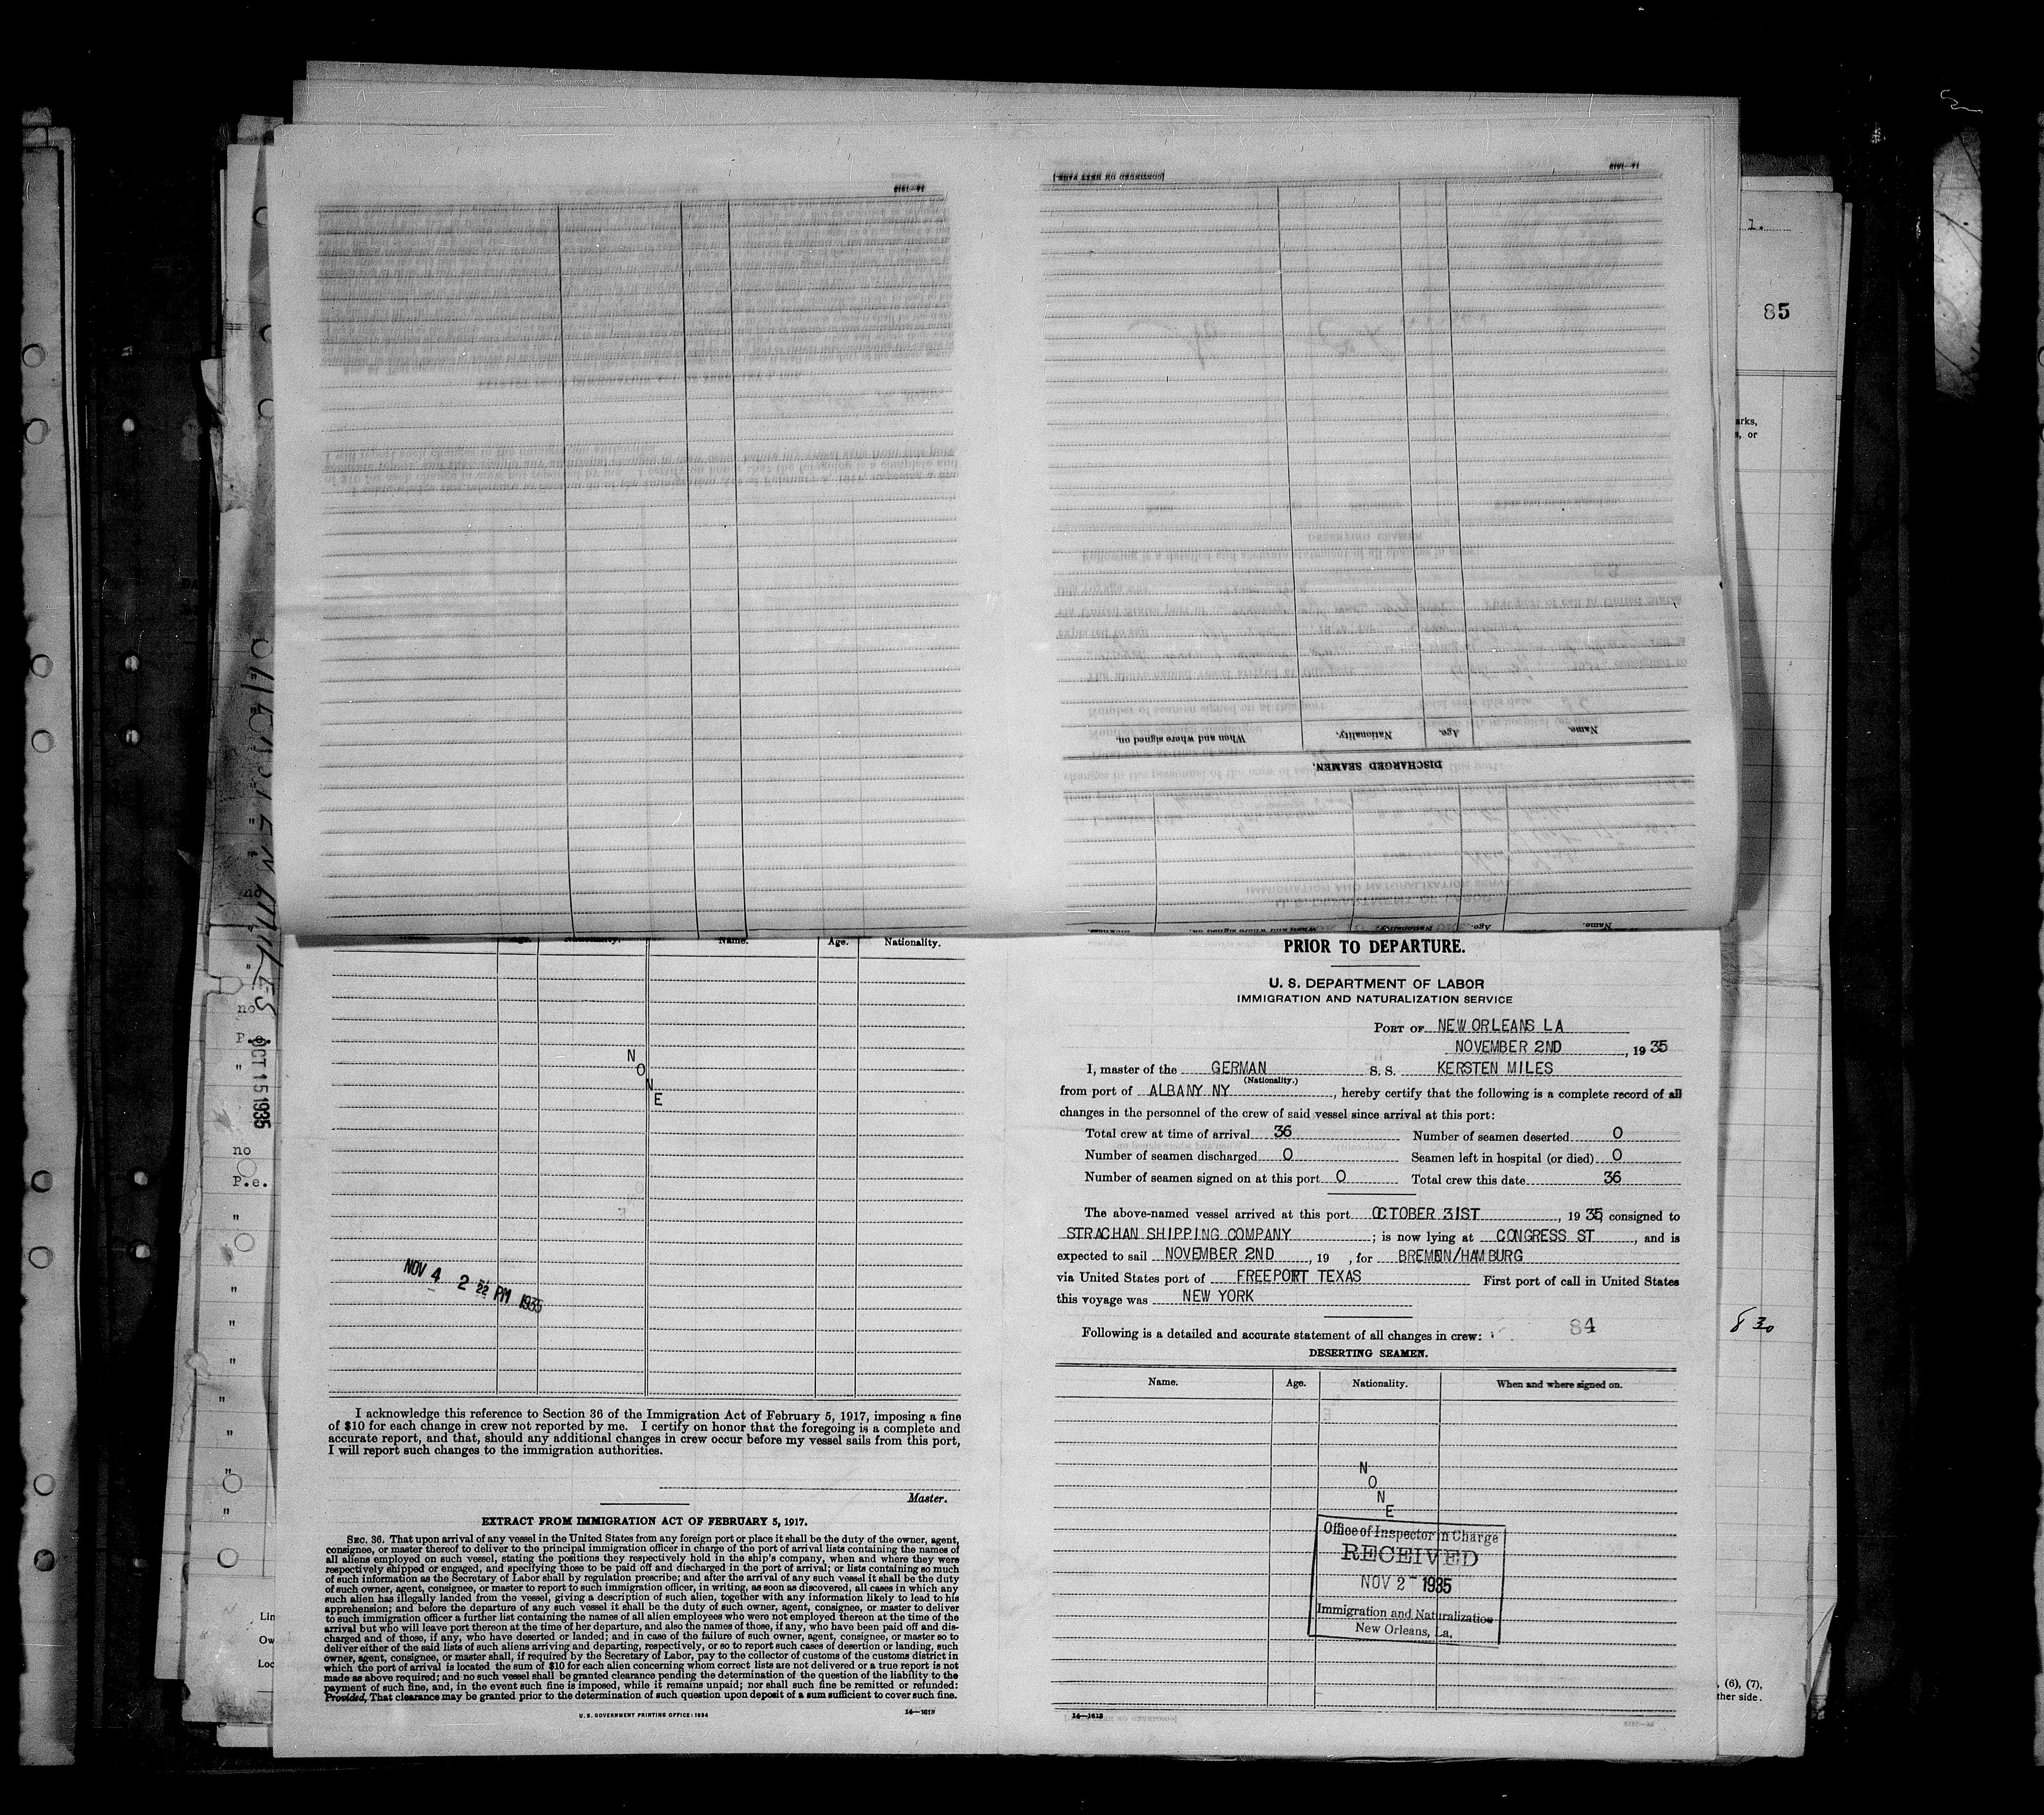 1.
85
arks,
s, or
16—1613
[CONTINUED ON NEXT PAGE.]
16—1613
Name. Age. Nationality. When and where signed on.
DISCHARGED SEAMEN.
Name. Age. Nationality. When and where signed on.
Age. Nationality. Name. Age. Nationality.
N
O
N
E
NOV 4 2 22 PM 1935
I acknowledge this reference to Section 36 of the Immigration Act of February 5, 1917, imposing a fine
of $10 for each change in crew not reported by me. I certify on honor that the foregoing is a complete and
accurate report, and that, should any additional changes in crew occur before my vessel sails from this port,
I will report such changes to the immigration authorities.
Master.
EXTRACT FROM IMMIGRATION ACT OF FEBRUARY 5, 1917.
SEC. 36. That upon arrival of any vessel in the United States from any foreign port or place it shall be the duty of the owner, agent,
consignee, or master thereof to deliver to the principal immigration officer in charge of the port of arrival lists containing the names of
all aliens employed on such vessel, stating the positions they respectively hold in the ship's company, when and where they were
respectively shipped or engaged, and specifying those to be paid off and discharged in the port of arrival; or lists containing so much
of such information as the Secretary of Labor shall by regulation prescribe; and after the arrival of any such vessel it shall be the duty
of such owner, agent, consignee, or master to report to such immigration officer, in writing, as soon as discovered, all cases in which any
such alien has illegally landed from the vessel, giving a description of such alien, together with any information likely to lead to his
apprehension; and before the departure of any such vessel it shall be the duty of such owner, agent, consignee, or master to deliver
to such immigration officer a further list containing the names of all alien employees who were not employed thereon at the time of the
arrival but who will leave port thereon at the time of her departure, and also the names of those, if any, who have been paid off and dis-
charged and of those, if any, who have deserted or landed; and in case of the failure of such owner, agent, consignee, or master so to
deliver either of the said lists of such aliens arriving and departing, respectively, or so to report such cases of desertion or landing, such
owner, agent, consignee, or master shall, if required by the Secretary of Labor, pay to the collector of customs of the customs district in
which the port of arrival is located the sum of $10 for each alien concerning whom correct lists are not delivered or a true report is not
made as above required; and no such vessel shall be granted clearance pending the determination of the question of the liability to the
payment of such fine, and, in the event such fine is imposed, while it remains unpaid; nor shall such fine be remitted or refunded:
Provided, That clearance may be granted prior to the determination of such question upon deposit of a sum sufficient to cover such fine.
U. S. GOVERNMENT PRINTING OFFICE: 1934 16—1613
PRIOR TO DEPARTURE.
U. S. DEPARTMENT OF LABOR
IMMIGRATION AND NATURALIZATION SERVICE
PORT OF NEW ORLEANS LA
NOVEMBER 2ND, 1935
I, master of the GERMAN S. S. KERSTEN MILES
(Nationality.)
from port of ALBANY NY, hereby certify that the following is a complete record of all
changes in the personnel of the crew of said vessel since arrival at this port:
Total crew at time of arrival 36 Number of seamen deserted 0
Number of seamen discharged 0 Seamen left in hospital (or died) 0
Number of seamen signed on at this port 0 Total crew this date 36
The above-named vessel arrived at this port OCTOBER 31ST, 1935, consigned to
STRACHAN SHIPPING COMPANY; is now lying at CONGRESS ST, and is
expected to sail NOVEMBER 2ND, 19 , for BREMEN/HAMBURG
via United States port of FREEPORT TEXAS First port of call in United States
this voyage was NEW YORK
Following is a detailed and accurate statement of all changes in crew: 84
DESERTING SEAMEN.
Name. Age. Nationality. When and where signed on.
N
O
N
E
Office of Inspector in Charge
RECEIVED
NOV 2 - 1935
Immigration and Naturalization
New Orleans, La.
16—1613
OCT 15 1935
no
no
P.e.
no
P.e.
Lin
Ow
Loc
8 30
, (6), (7),
ther side.